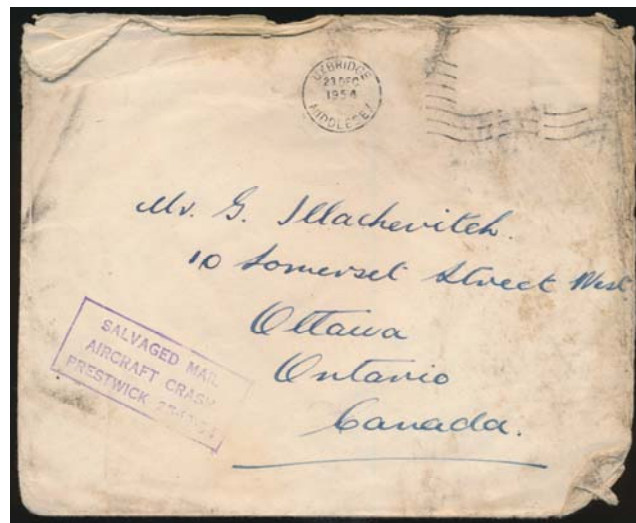 UXBRIDGE
23 DEC
1954
MIDDLESEX
Mr. G. Illachevitch.
10 Somerset Street West.
Ottawa
Ontario
Canada.
SALVAGED MAIL
AIRCRAFT CRASH
PRESTWICK